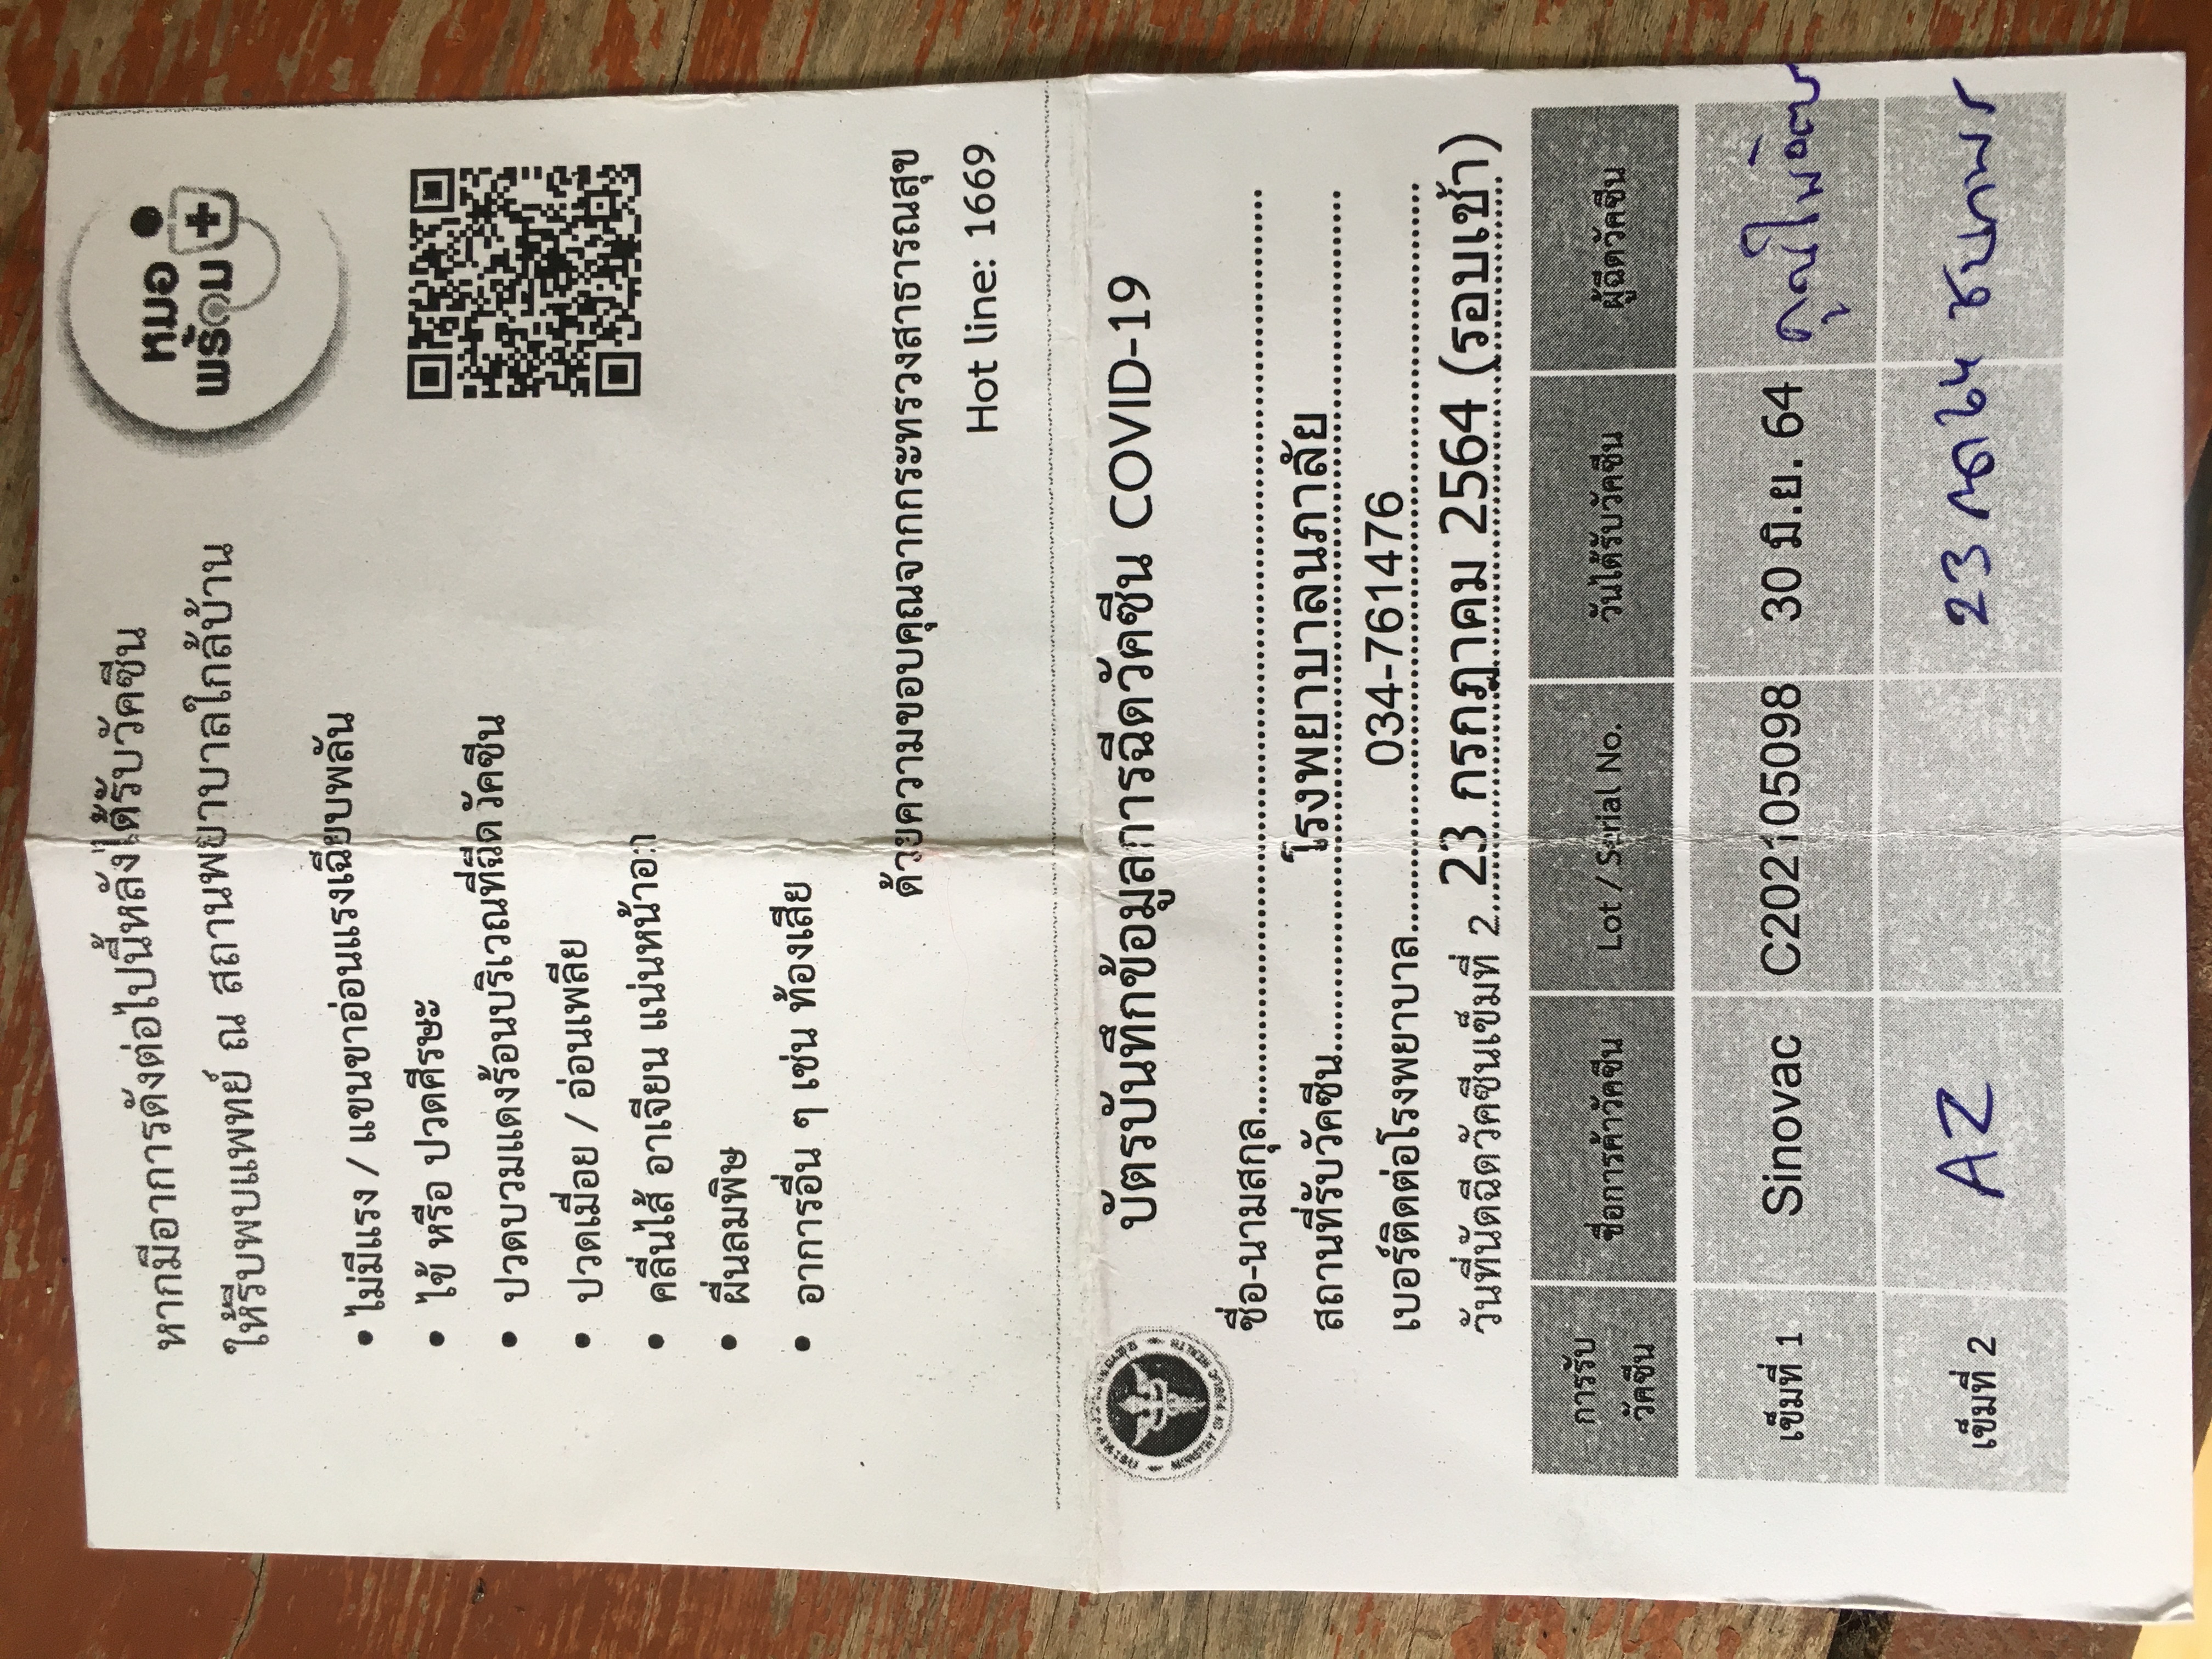 หมอ
พร้อม
หากมีอาการดังต่อไปนี้หลังได้รับวัคซีน
ให้รีบพบแพทย์ ณ สถานพยาบาลใกล้บ้าน
• ไม่มีแรง / แขนขาอ่อนแรงเฉียบพลัน
• ไข้ หรือ ปวดศีรษะ
• ปวดบวมแดงร้อนบริเวณที่ฉีดวัคซีน
• ปวดเมื่อย / อ่อนเพลีย
• คลื่นไส้ อาเจียน แน่นหน้าอก
• ผื่นลมพิษ
• อาการอื่น ๆ เช่น ท้องเสีย
ด้วยความขอบคุณจากกระทรวงสาธารณสุข
Hot line: 1669
กระทรวงสาธารณสุข
MINISTRY OF PUBLIC HEALTH
บัตรบันทึกข้อมูลการฉีดวัคซีน COVID-19
ชื่อ-นามสกุล
สถานที่รับวัคซีน โรงพยาบาลนภาลัย
เบอร์ติดต่อโรงพยาบาล 034-761476
วันที่นัดฉีดวัคซีนเข็มที่ 2 23 กรกฎาคม 2564 (รอบเช้า)
การรับวัคซีน ชื่อการค้าวัคซีน Lot / Serial No. วันได้รับวัคซีน ผู้ฉีดวัคซีน
เข็มที่ 1 Sinovac C202105098 30 มิ.ย. 64
เข็มที่ 2 AZ 23 กค 64